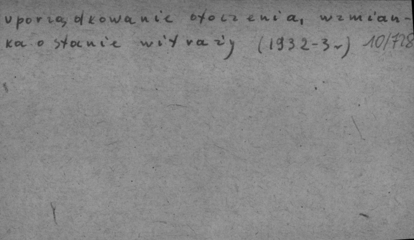 uporządkowanie otoczenia, wzmian-
ka o stanie witraży (1932-3r) 10/728